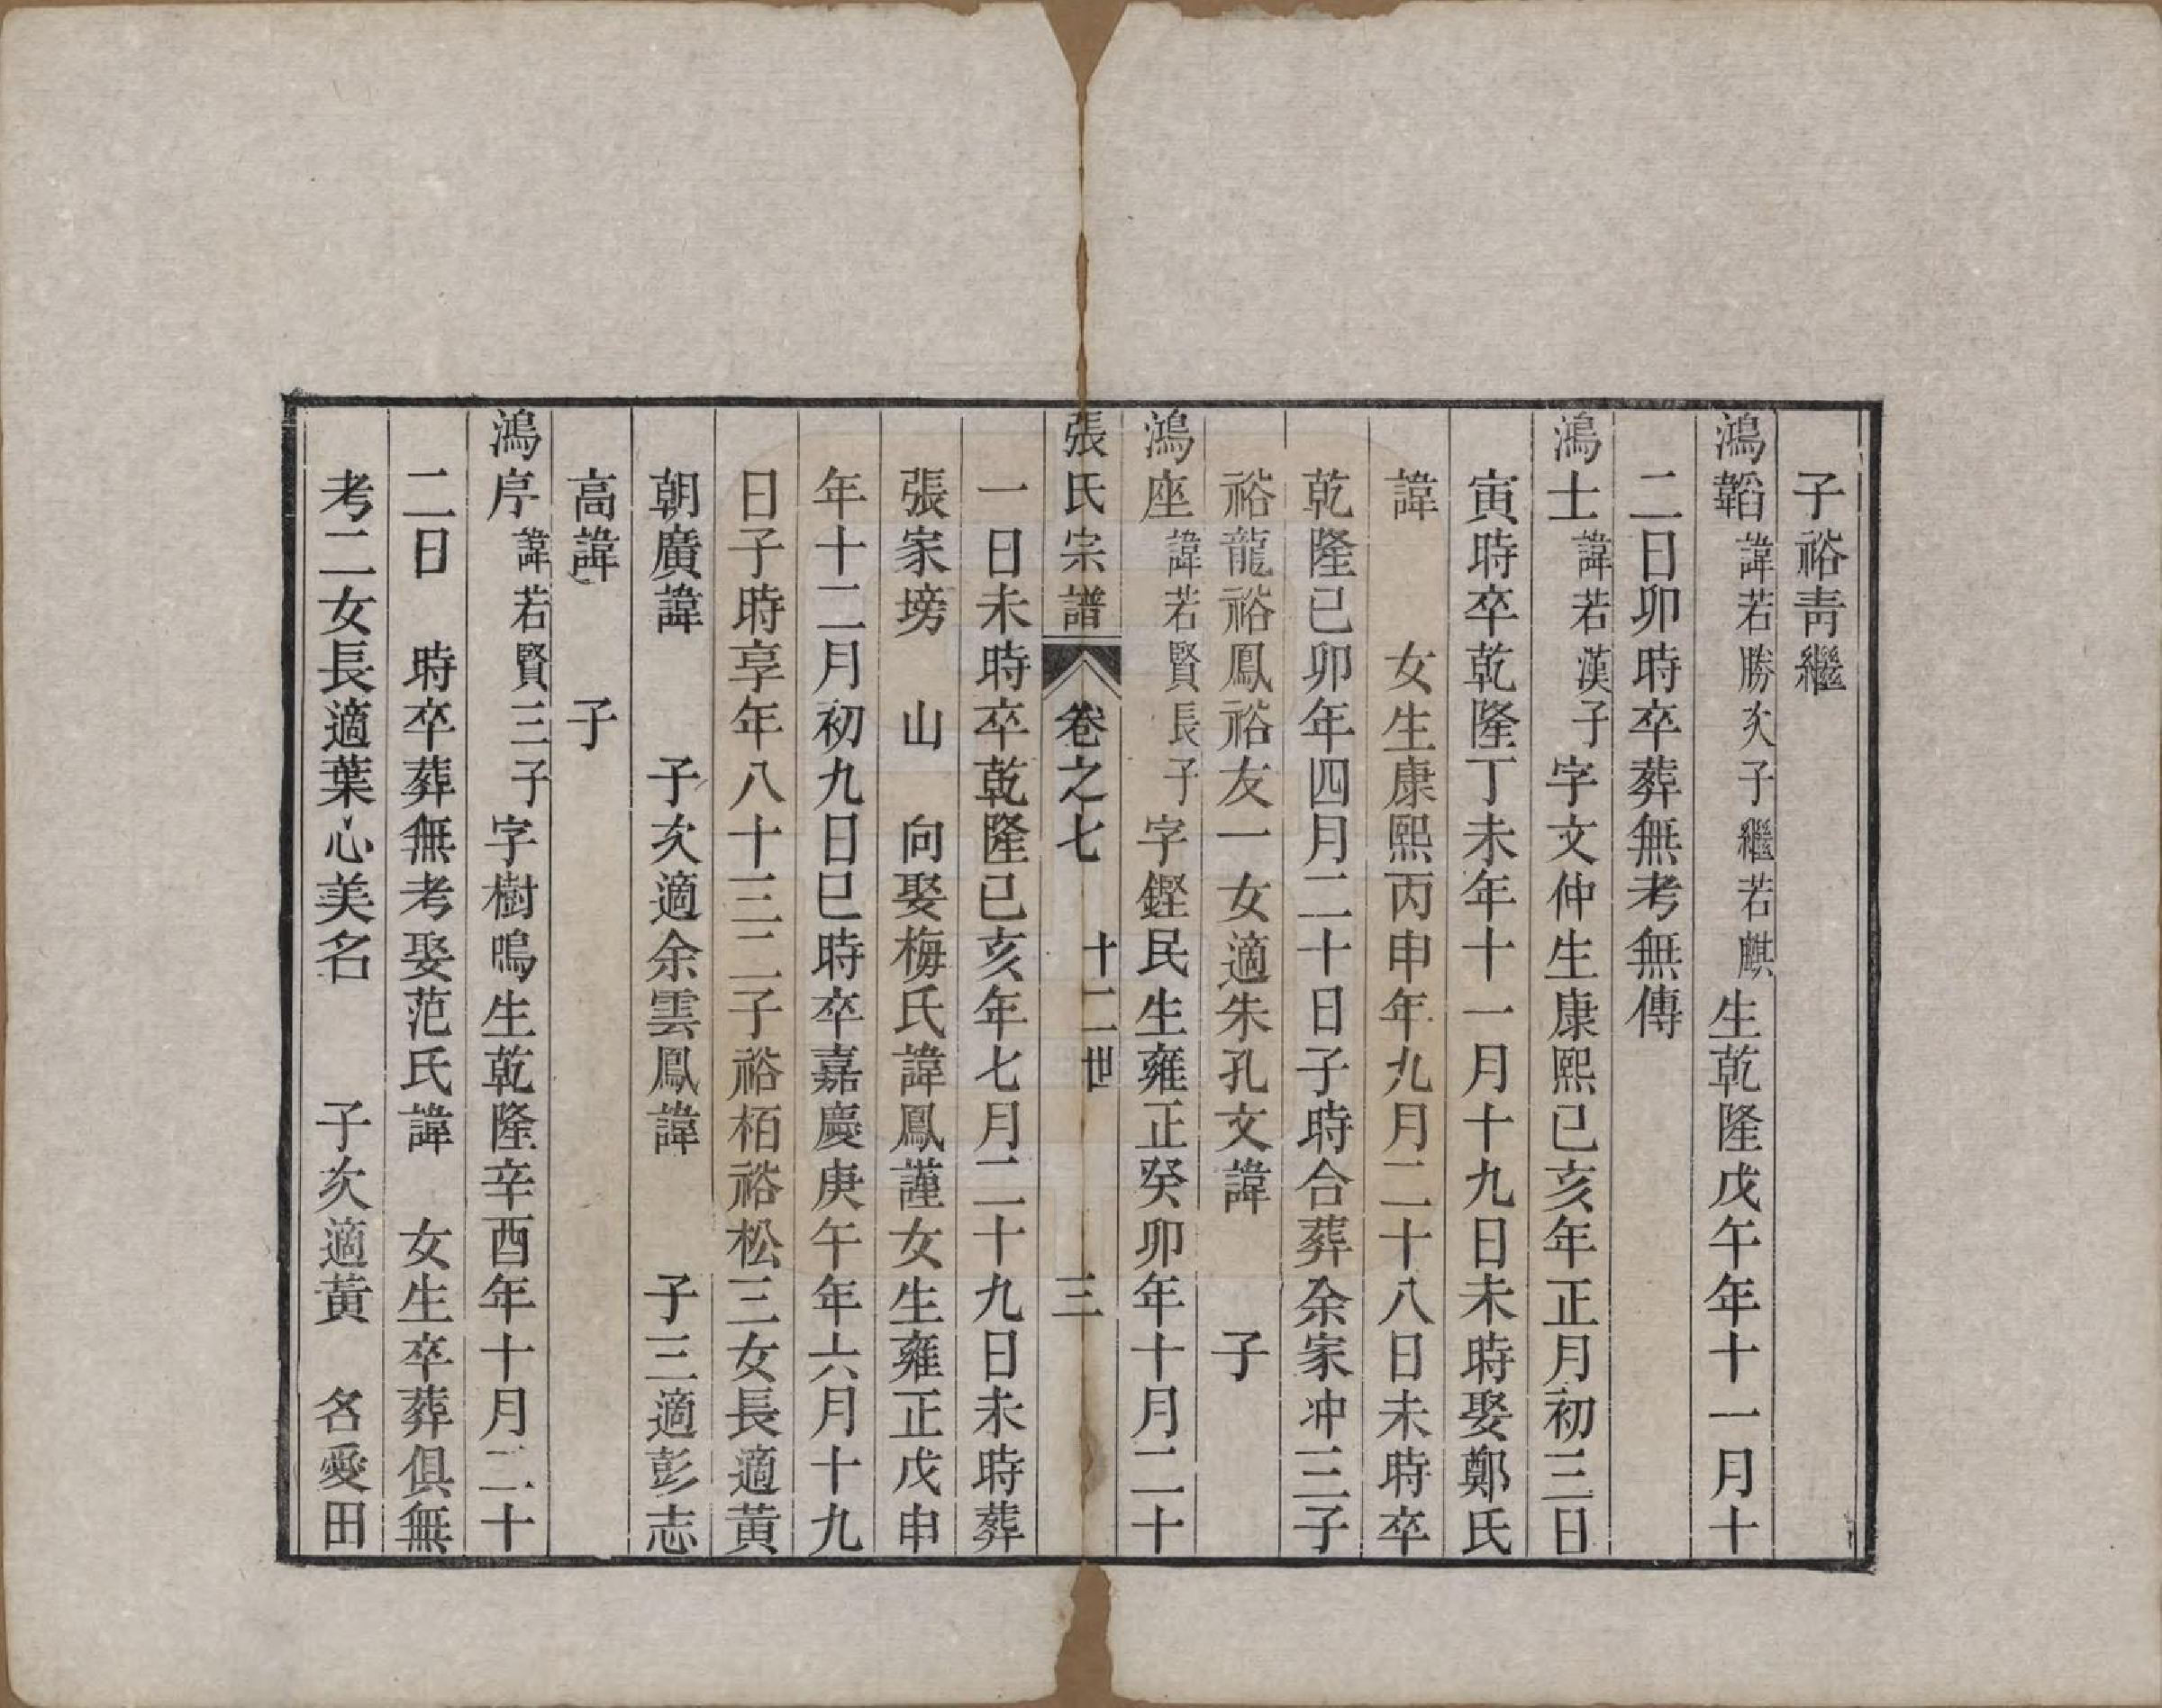 子裕靑繼
鴻韜諱若勝次子繼若麒生乾隆戊午年十一月十
二日卯時卒葬無考無傳
鴻士諱若漢子字文仲生康熙己亥年正月初三日
寅時卒乾隆丁未年十一月十九日未時娶鄭氏
諱　女生康熙丙申年九月二十八日未時卒
乾隆己卯年四月二十日子時合葬余家冲三子
裕龍裕鳳裕友一女適朱孔文諱　子
鴻座諱若賢長子字鏗民生雍正癸卯年十月二十
張氏宗譜　卷之七　十二世　三
一日未時卒乾隆己亥年七月二十九日未時葬
張家塝　山　向娶梅氏諱鳳謹女生雍正戊申
年十二月初九日巳時卒嘉慶庚午年六月十九
日子時享年八十三二子裕栢裕松三女長適黃
朝廣諱　子次適余雲鳳諱　子三適彭志
高諱　子
鴻序諱若賢三子字樹鳴生乾隆辛酉年十月二十
二日　時卒葬無考娶范氏諱　女生卒葬俱無
考二女長適葉心美名　子次適黃　名愛田